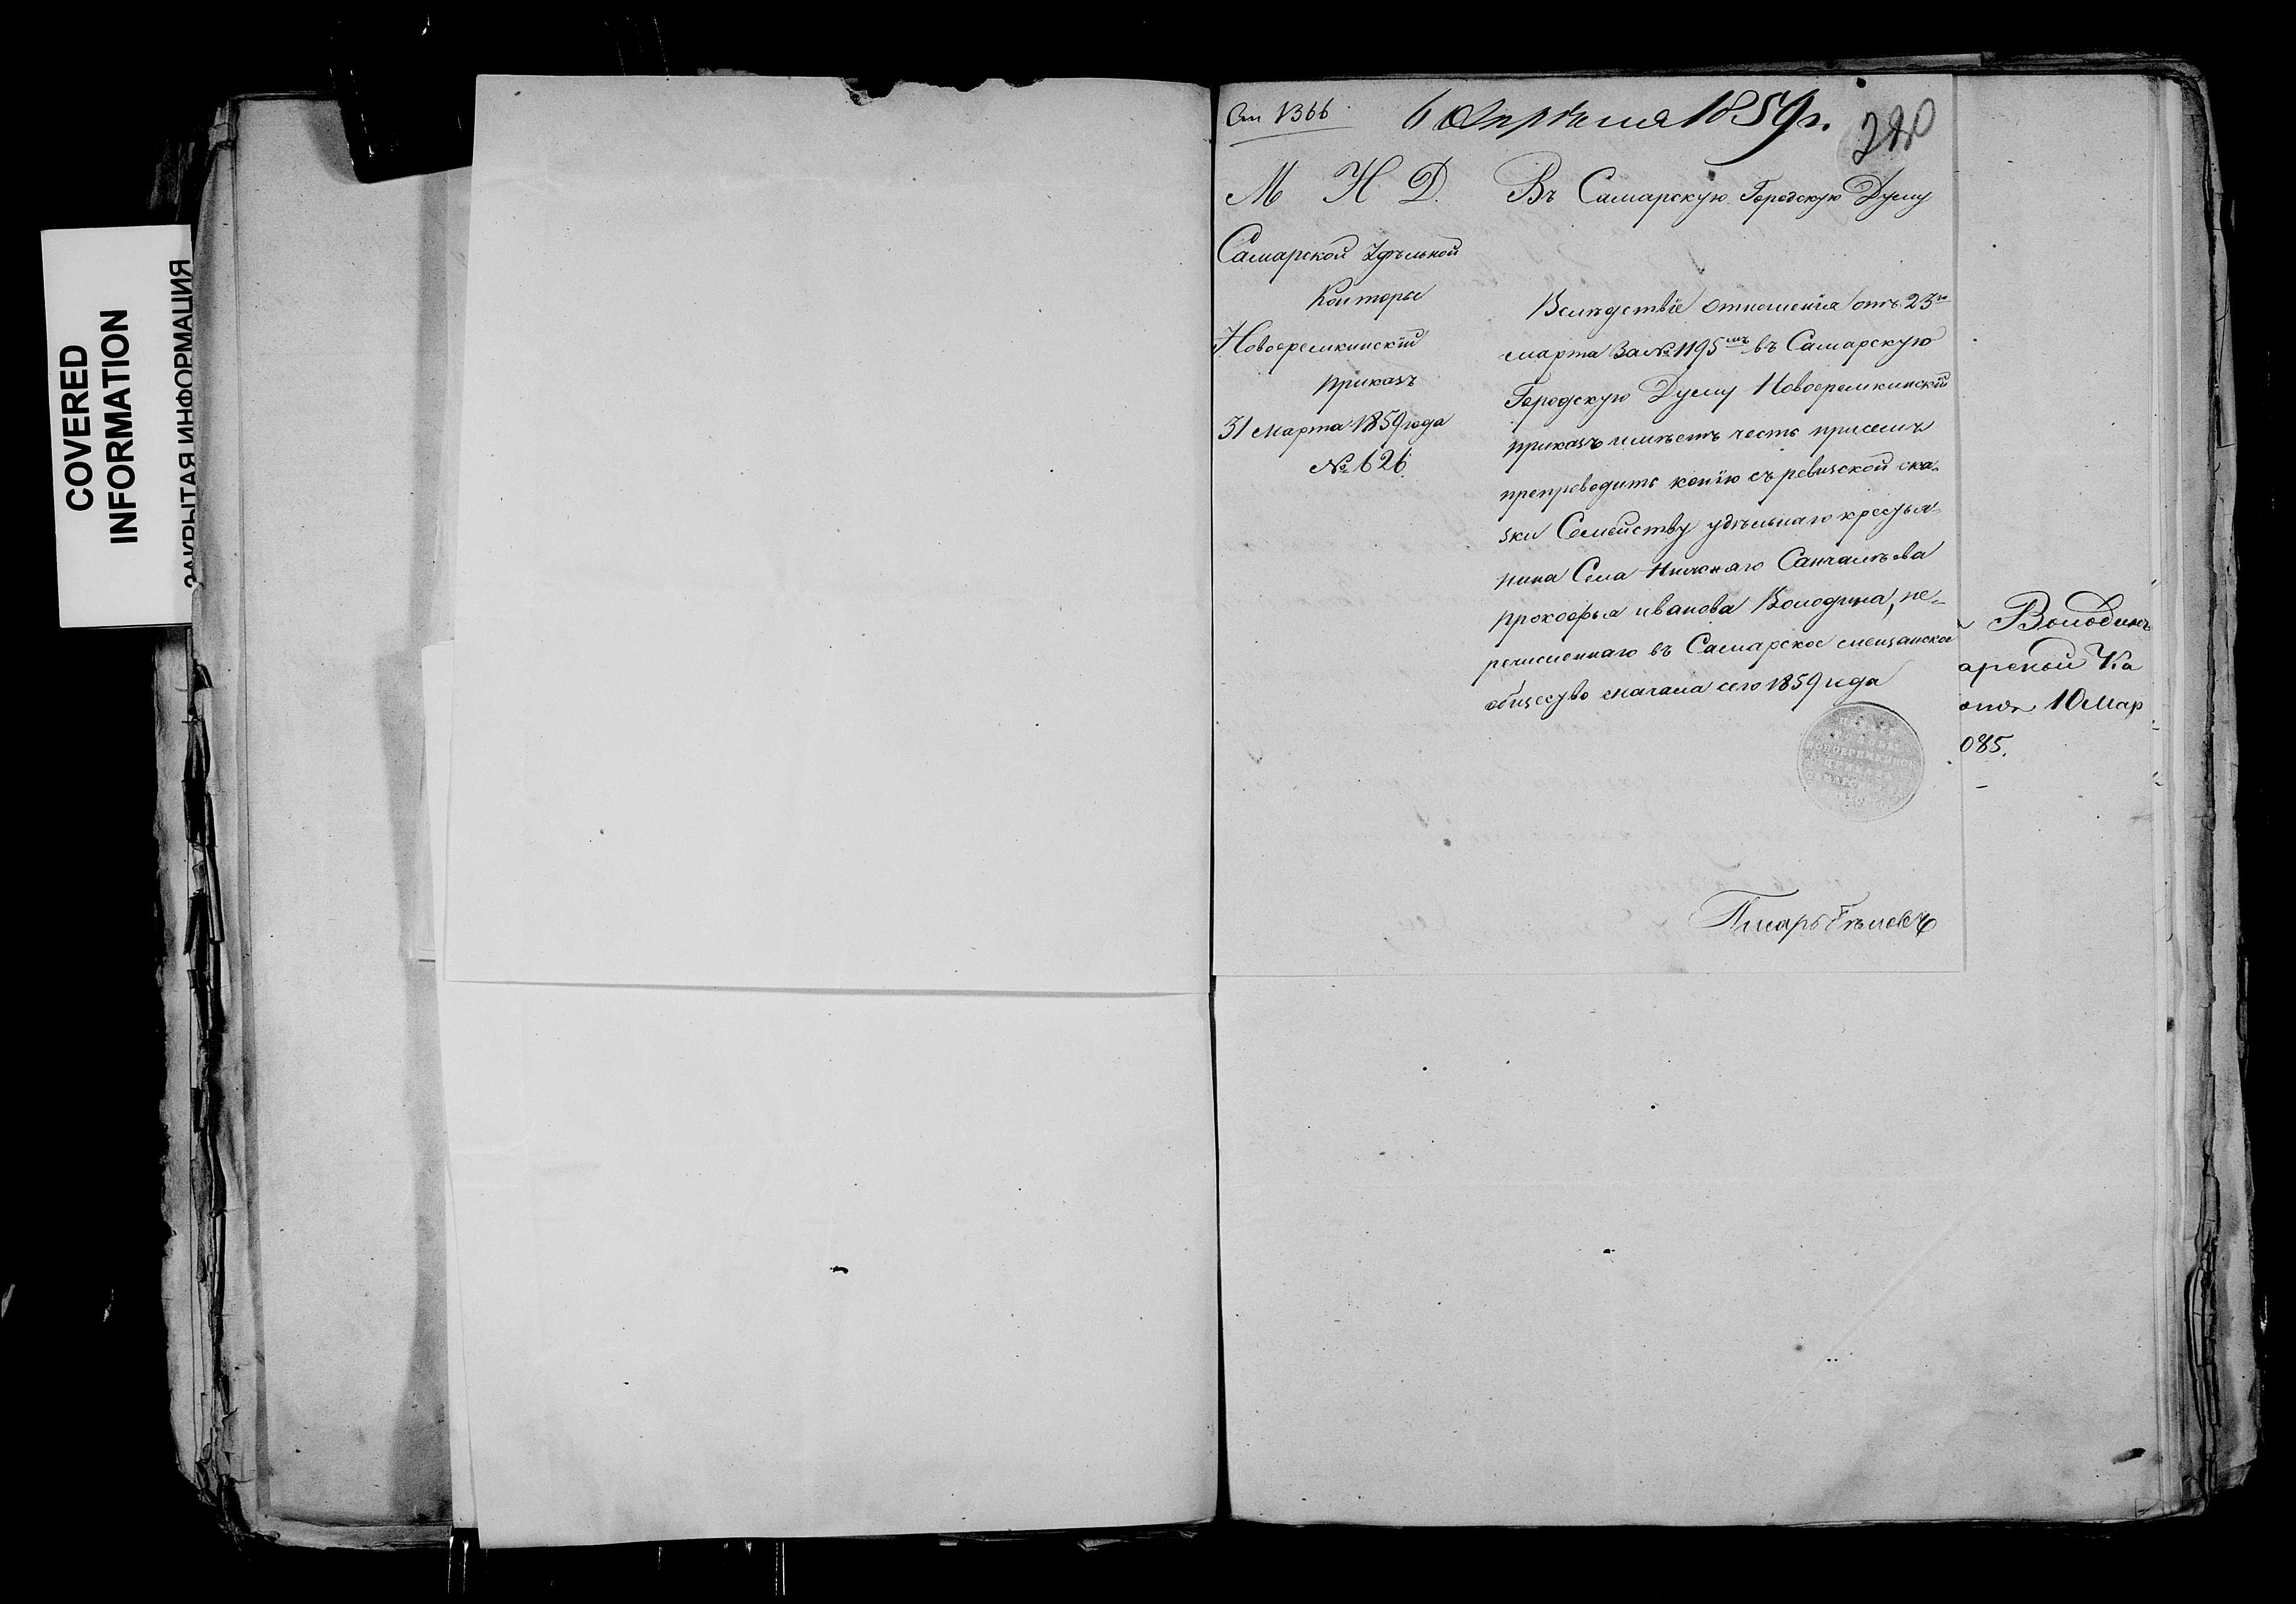 COVERED
INFORMATION
ЗАКРЫТАЯ ИНФОРМАЦИЯ
Вх 1366
6 Апрѣля 1859 г.
280
М И Д.
Самарской Удѣльной
Конторы
Новоеремкинскій
приказъ
31 Марта 1859 года
№ 626.
Въ Самарскую Городскую Думу
Вслѣдствіе отношенія отъ 23го
марта За № 1195мъ въ Самарскую
Городскую Думу Новоеремкинскій
приказъ имѣетъ честь присемъ
препроводить копію съ ревизской ска-
зки Семейству удѣльнаго крестья-
нина Села Нижняго Санчалѣева
прокофья иванова Володина, пе-
речисленнаго въ Самарское мещанское
общество сначала сего 1859 года
Писарь Бѣловъ
Володинъ
арской Ка
10 Мар
085.